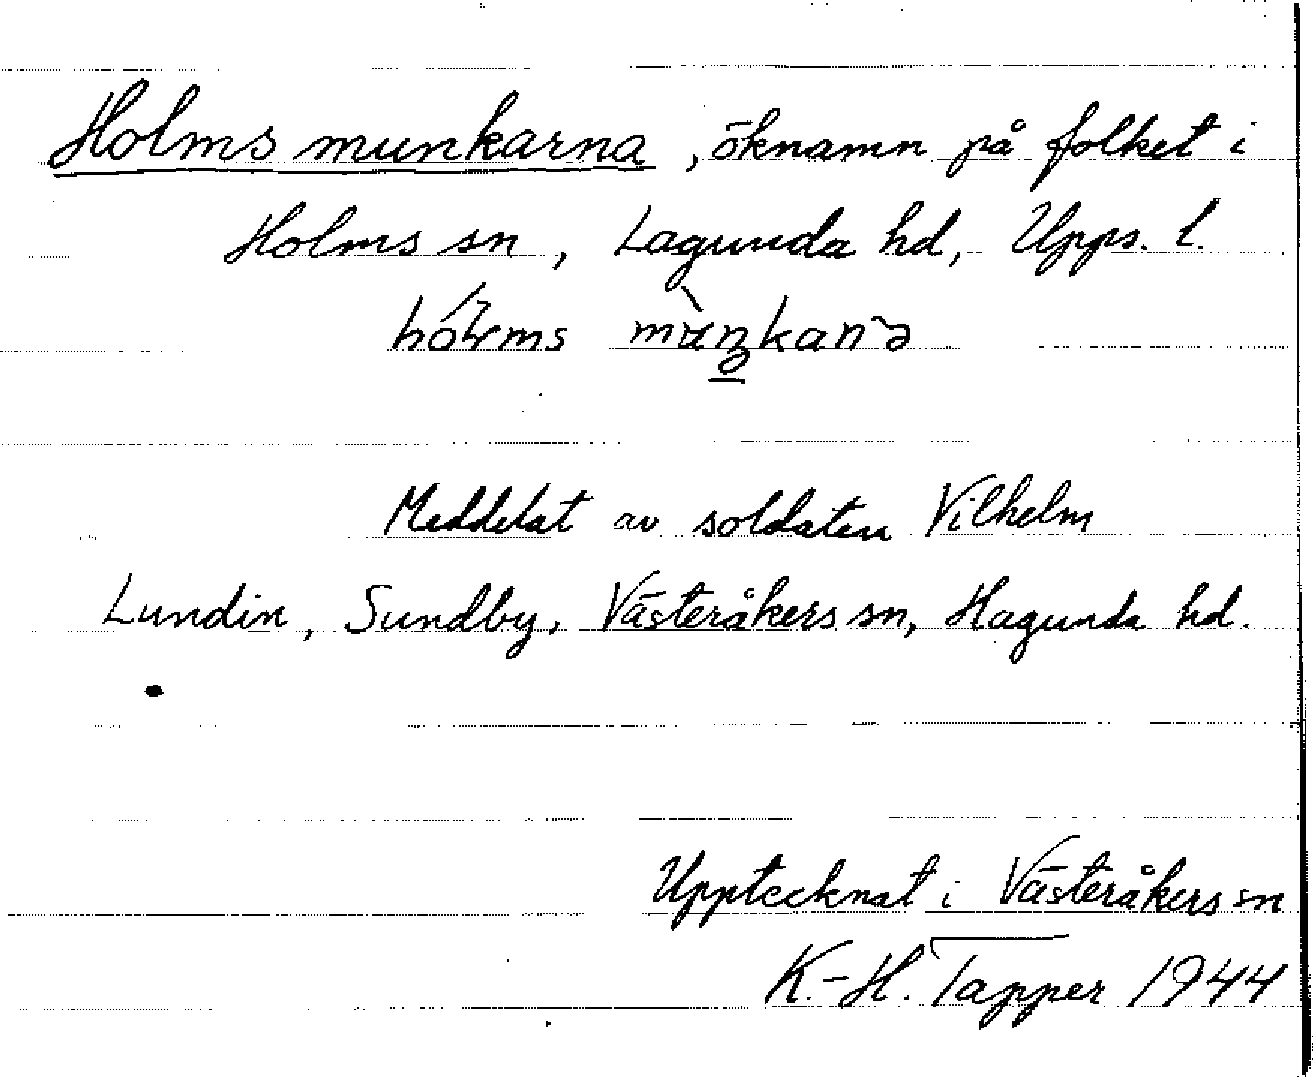 Holms munkarna, öknamn på folket i
Holms sn, Lagunda hd, Upps. l.
Meddelat av soldaten Vilhelm
Lundin, Sundby, Västeråkers sn, Hagunda hd.
Upptecknat i Västeråkers sn
K.-H. Tapper 1944